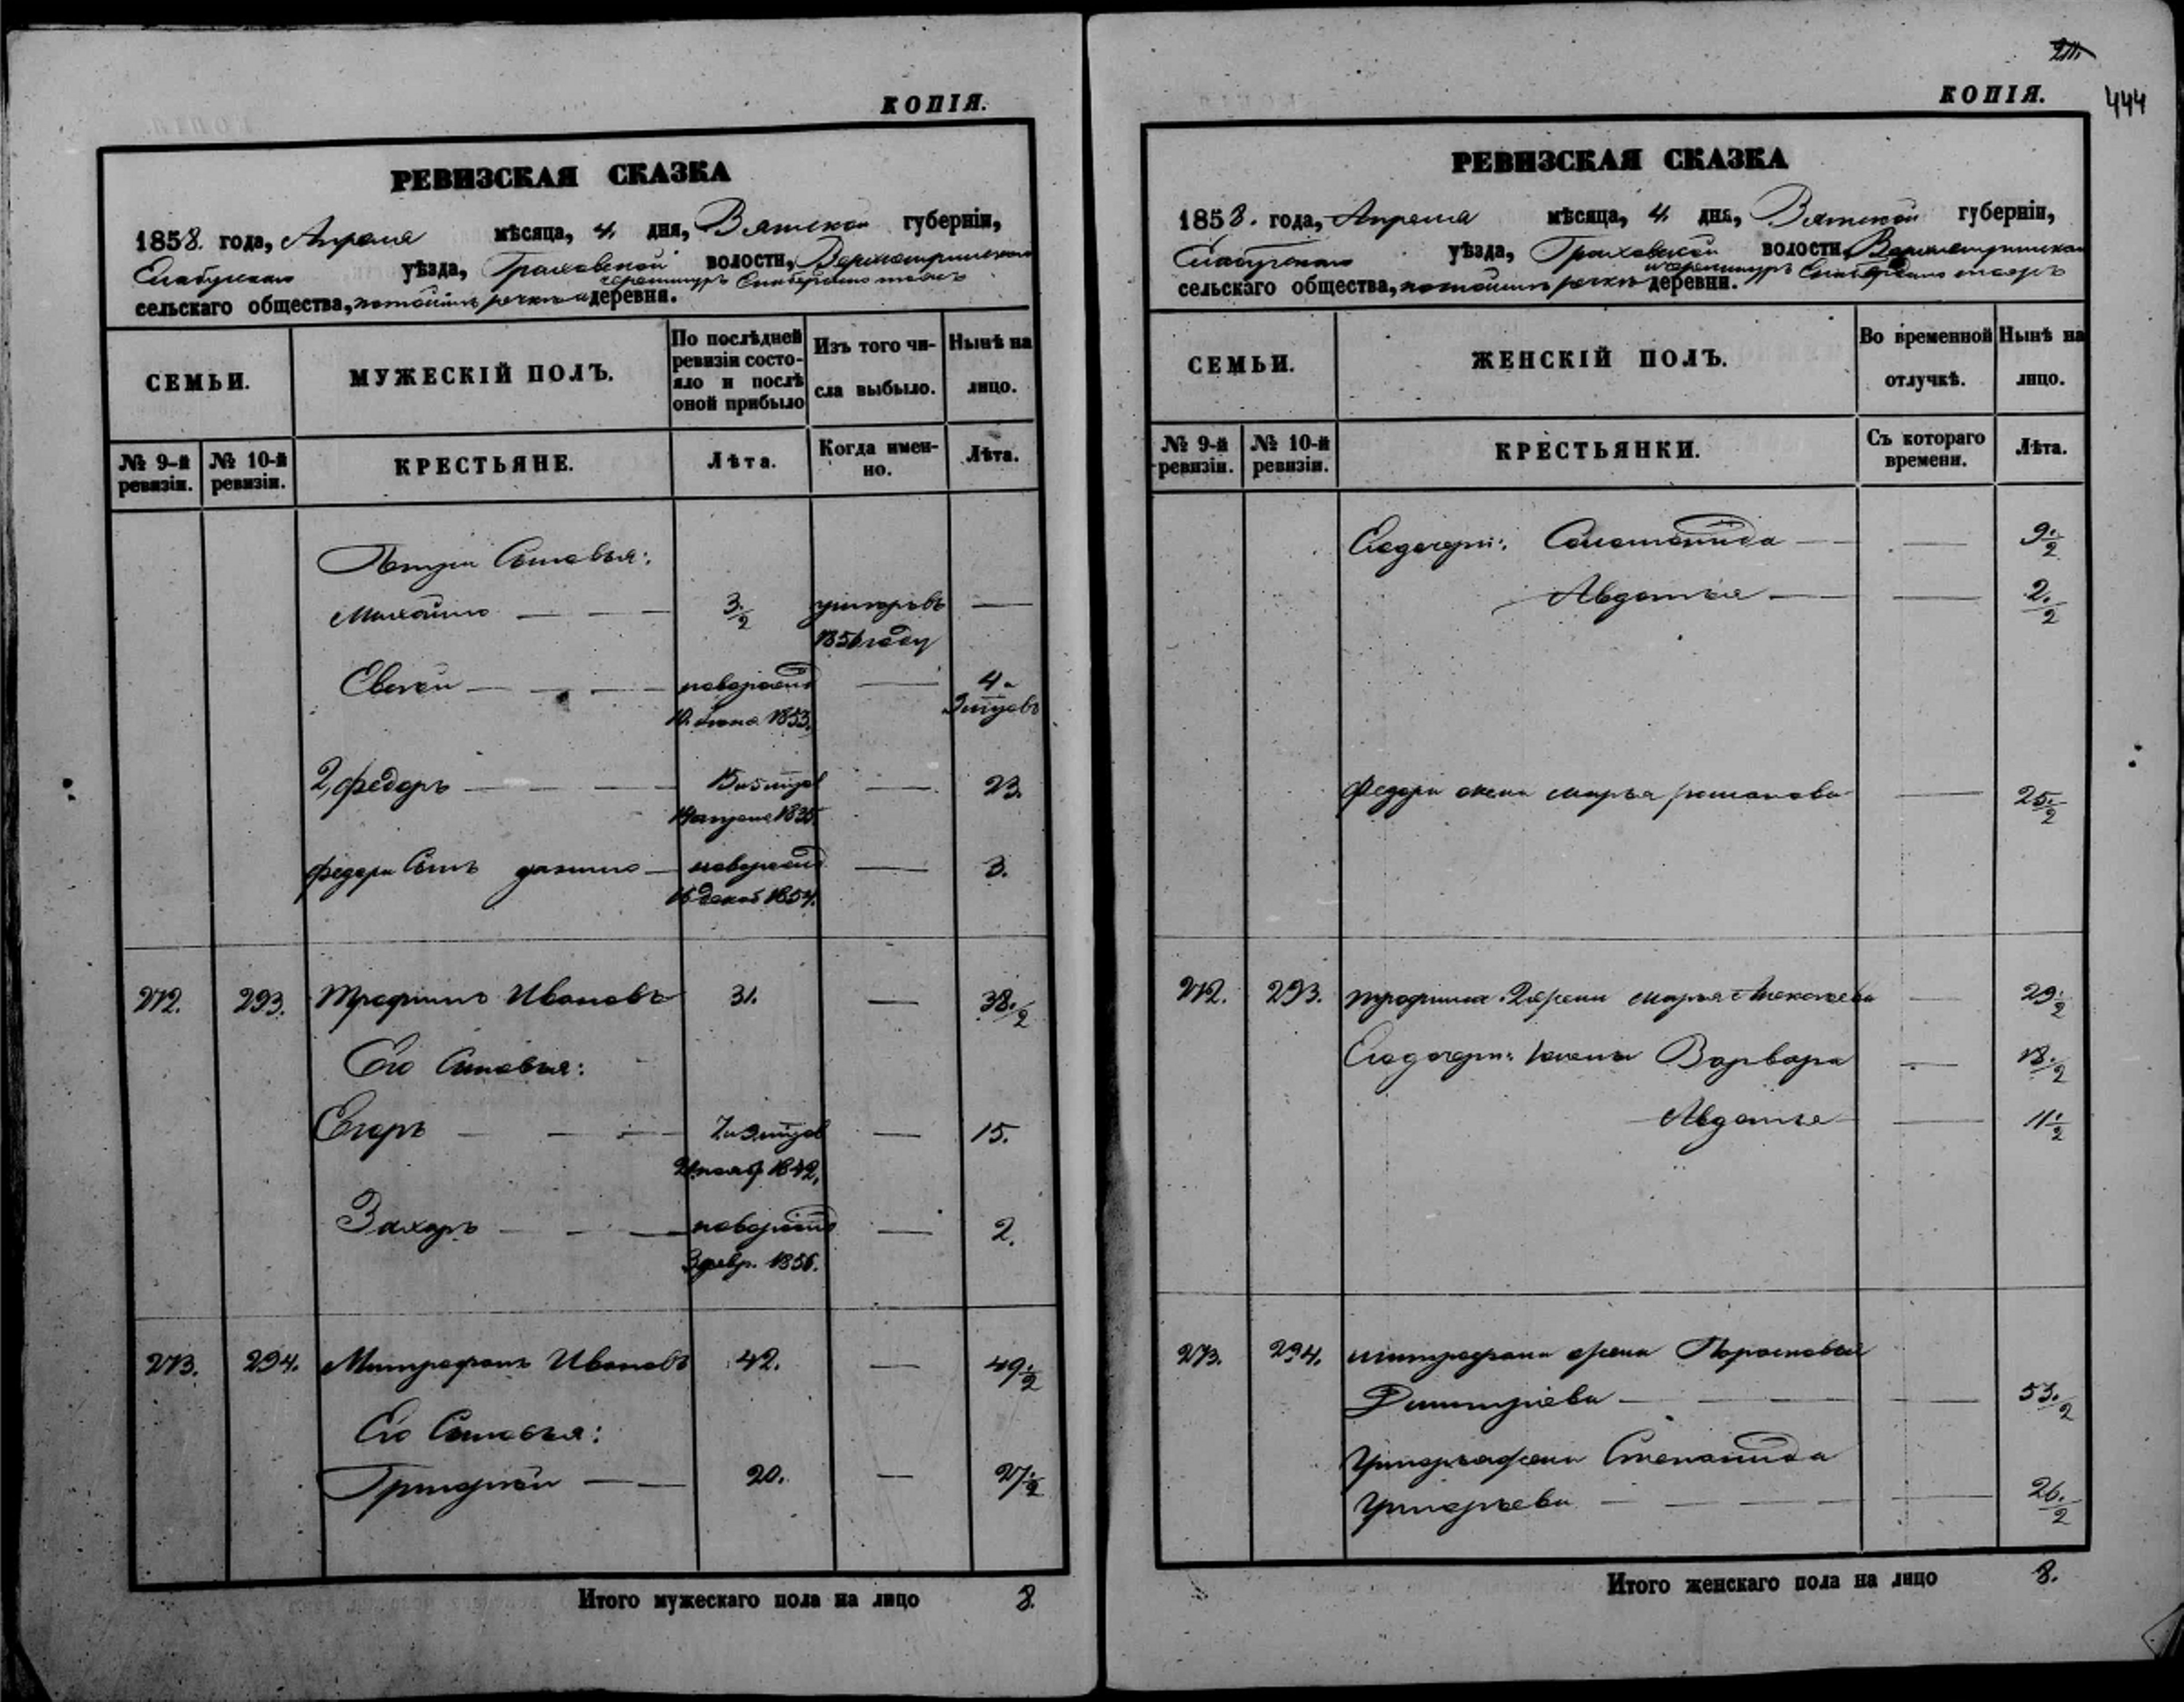 КОПІЯ.
РЕВИЗСКАЯ СКАЗКА
1858. года, Апреля мѣсяца, 4. дня, Вятской губерніи,
Елабугскаго уѣзда, Граховской волости,
сельскаго общества, деревни.
СЕМЬИ.
МУЖЕСКІЙ ПОЛЪ.
По послѣдней ревизіи состояло и послѣ оной прибыло
Изъ того числа выбыло.
Нынѣ на лицо.
№ 9-й ревизіи.
№ 10-й ревизіи.
КРЕСТЬЯНЕ.
Лѣта.
Когда именно.
Лѣта.
Петра Сыновья:
Михайло 3./2 умгоръвъ —
1856 году
Евсей — новорожд — 4 и
10. Июня 1853. 9 мцовъ
2, Федоръ — 15 и 5 мцов — 23.
1835
Федора Сынъ — новорожд — 3.
16 декаб 1854.
272. 293. Трофимъ Ивановъ 31. — 38./2
Его Сыновья:
Егоръ — 7 и 9 мцов — 15.
нояб 1842.
Захаръ — новорожд — 2.
3 февр. 1856.
273. 294. Митрофанъ Ивановъ 42. — 49./2
Его Сыновья:
Григорей — 20. — 27./2
Итого мужескаго пола на лицо 8.
КОПІЯ.
444
РЕВИЗСКАЯ СКАЗКА
1858. года, Апреля мѣсяца, 4. дня, Вятской губерніи,
Елабугскаго уѣзда, Граховской волости,
сельскаго общества, деревни.
СЕМЬИ.
ЖЕНСКІЙ ПОЛЪ.
Во временной отлучкѣ.
Нынѣ на лицо.
№ 9-й ревизіи.
№ 10-й ревизіи.
КРЕСТЬЯНКИ.
Съ котораго времени.
Лѣта.
Ея дочери: Соломонида — 9./2
Авдотья — 2./2
Федора жена Марья Романова — 25./2
272. 293. Трофима 2я жена Марья Алексеева — 29./2
Его дочери: Варвара — 18./2
Авдотья — 11./2
273. 294. Митрофана жена Парасковья
Димитріева — 53./2
Степанида
Григорьева — 26./2
Итого женскаго пола на лицо 8.